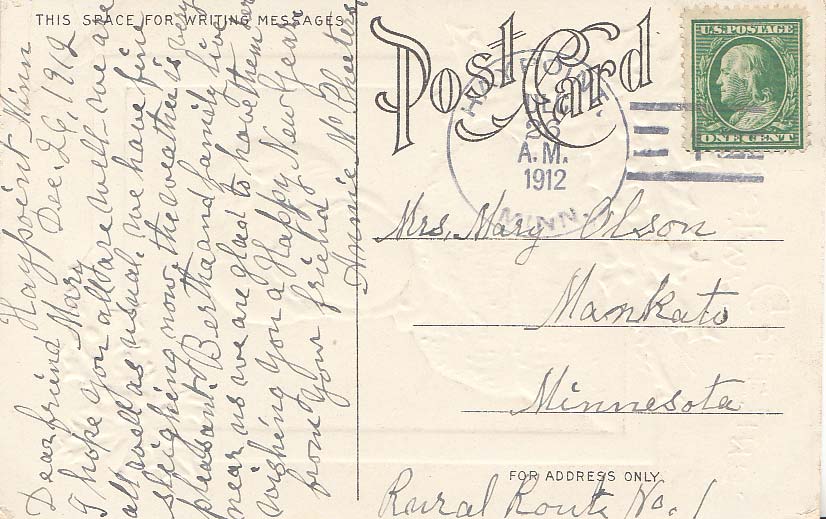 THIS SPACE FOR WRITING MESSAGES
Haypoint Minn
Dec. 26, 1912
Dear friend Mary
I hope you all are well - we are
all well as usual. we have fine
sleighing now. the weather is very
pleasant. Bertha and family live
near us we are glad to have them here
wishing you a Happy New Year.
from your friend
Annie Mc Pheeters
Post Card
DEC
26
A.M.
1912
MINN.
U.S. POSTAGE
ONE CENT
Mrs, Mary Olson
Mankato
Minnesota
FOR ADDRESS ONLY.
Rural Route No. 1